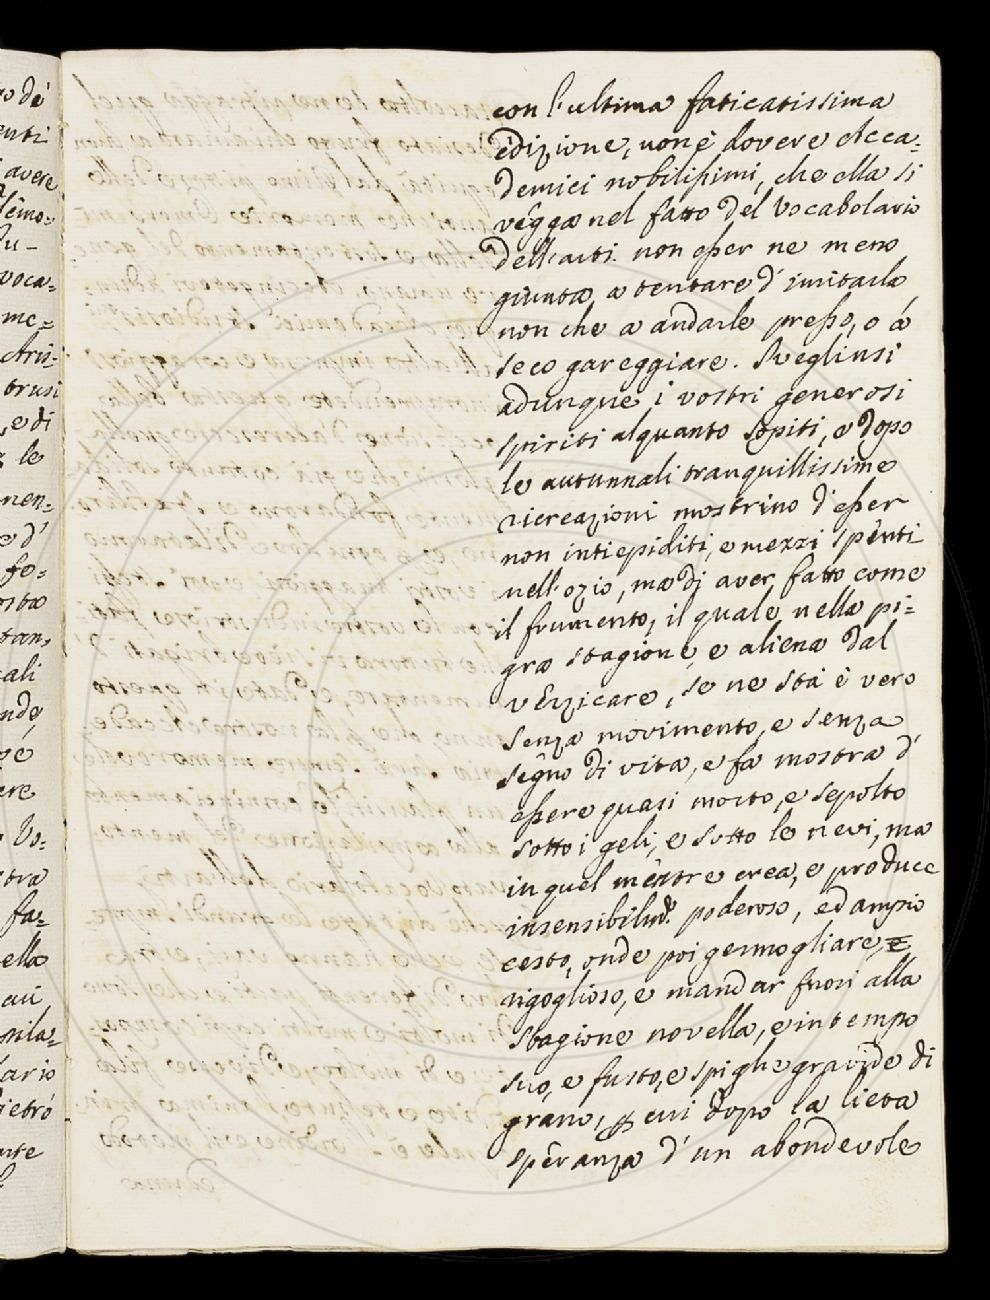 con l'ultima faticatissima
edizione, non è dovere Acca=
demici nobilissimi, che ella si
vegga nel fatto del Vocabolario
dell'arti non esser ne meno
giunta, a tentare d'imitarla,
non che a andarle presso, o a
seco gareggiare. Sveglinsi
adunque i vostri generosi
spiriti alquanto sopiti, e dopo
le autunnali tranquillissime
ricreazioni mostrino d'esser
non intiepiditi, e mezzi spenti
nell'ozio, ma di aver fatto come
il frumento, il quale nella pi=
gra stagione, e aliena dal
verzicare, se ne stà è vero
senza movimento, e senza
segno di vita, e fa mostra d'
essere quasi morto, e sepolto
sotto i geli, e sotto le nevi, ma
in quel mentre crea, e produce
poderoso, ed ampio
cesto, onde poi germogliare
rigoglioso, e mandar fuori alla
stagione novella, e in tempo
suo, e fusto, e spighe gravide di
grano, cui dopo la lieta
speranza d'un abondevole